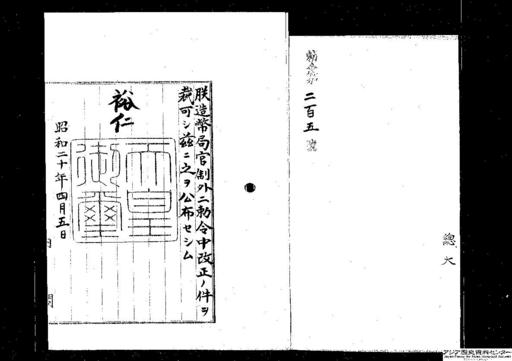 勅令第二百五號
總大
朕造幣局官制外二勅令中改正ノ件ヲ
裁可シ茲ニ之ヲ公布セシム
裕仁
天皇
御璽
昭和二十年四月五日
内閣
アジア歴史資料センター
Japan Center for Asian Historical Records